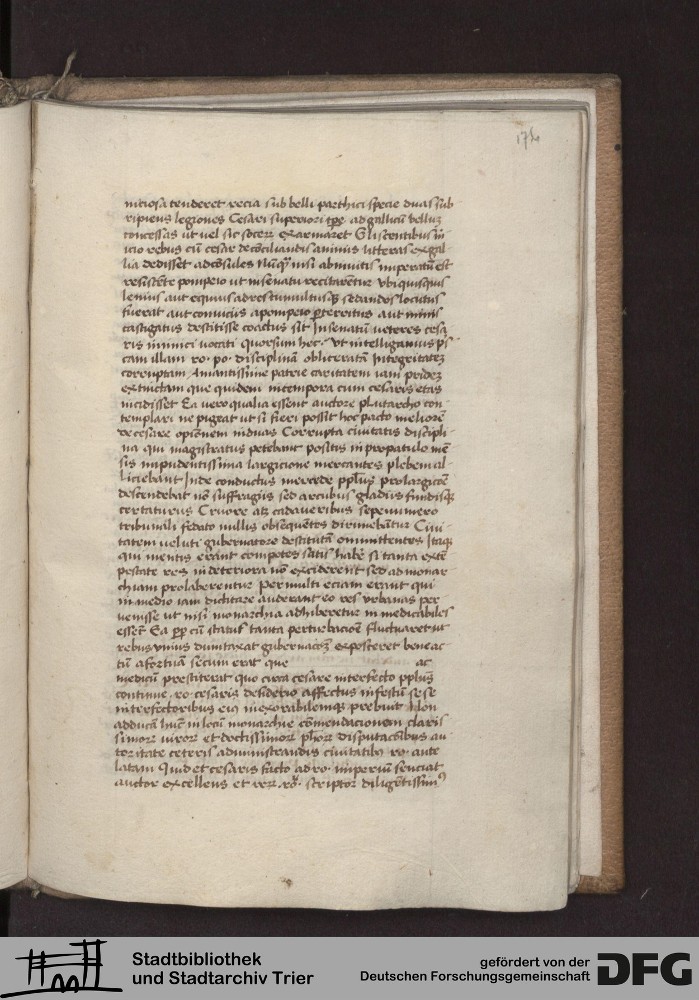 174
niciosa tenderet recia sub belli parthici specie duas sub
ripiens legiones Cesari superiori tpe ad gallicū bellū
concessas ut vel sic socerū exarmaret Gliscentibus in
icio rebus cū cesar de cōciliandis animis litteras ex gal
lia dedisset ad cōsules Nūqͣ nisi ab invitis imperatū est
resistēte pompeio ut in senatu recitarētur Ubi quisquis
lenius aut equius ad res tumultusqꝫ sedandos locutus
fuerat aut conviciis a pompeio ꝑterritus aut minis
castigatus destitisse coactus sit In senatum veteres cesa
ris inimici vocati quorsum hec. Ut intelligamus pͥs
cam illam ro. po. disciplinā obliteratā Integritatez
corruptam Amantissime patrie caritatem iam pridez
extinctam que quidem in tempora cum cesaris etas
incidisset Ea vero qualia essent auctore plutarcho con
templari ne pigeat ut si fieri possit hoc pacto meliorē
de cesare opiōnem induas Corrupta civitatis discipli
na qui magistratus petebant positis in propatulo mē
sis impudentissima largicione mercantes plebem al
liciebant Inde conductus mercede pplus pro largicōe
descendebat nō suffragiis sed arcubus gladiis fundisqꝫ
certaturus Cruore atqꝫ cadaveribus sepenumero
tribunali fedato nullis obsequētes dirimebātur Civi
tatem veluti gubernatore destitutā omittentes Itaqꝫ
qui mentis erant compotes satis habē si tanta ex tē
pestate res in deteriora nō exciderent sed ad monar
chiam prolaberentur Permulti eciam erant qui
in medio iam dictitare auderant eo res urbanas per
venisse ut nisi monarchia adhiberetur inmedicabiles
essēt Ea ꝓpͥ cū status tanta perturbacione fluctuaret ut
rebus unius dumtaxat gubernacōꝫ exposceret benefac
tū a fortūa secum erat que ac
medicū prestiterat quo circa cesare interfecto pplus
continue. ro. cesaris desiderio affectus infestū se se
interfectoribus eiꝰ inexorabilemqꝫ prebuit Non
adducā hūc in locū monarchie cōmendacionem claris
simorꝝ virorꝝ et doctissimorꝝ phōrꝝ disputacōibus au
toritate ceteris administrandis civitatibꝰ ro. ante
latam Quid et cesaris facto ad ro. imperiū senciat
auctor excellens et rerꝝ. roͣ. scriptor diligētissimꝰ
Stadtbibliothek
und Stadtarchiv Trier
gefördert von der
Deutschen Forschungsgemeinschaft
DFG